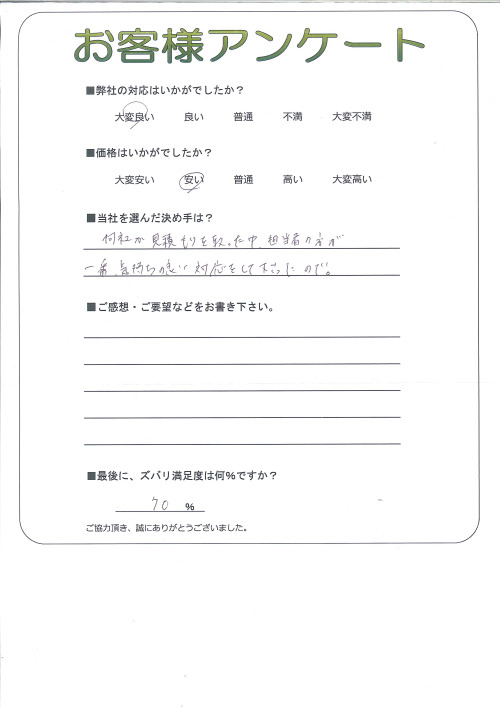 お客様アンケート
■弊社の対応はいかがでしたか？
大変良い 良い 普通 不満 大変不満
■価格はいかがでしたか？
大変安い 安い 普通 高い 大変高い
■当社を選んだ決め手は？
何社か見積もりを取った中、担当者の方が
一番、気持ちの良い対応をして下さったので。
■ご感想・ご要望などをお書き下さい。
■最後に、ズバリ満足度は何％ですか？
70 ％
ご協力頂き、誠にありがとうございました。